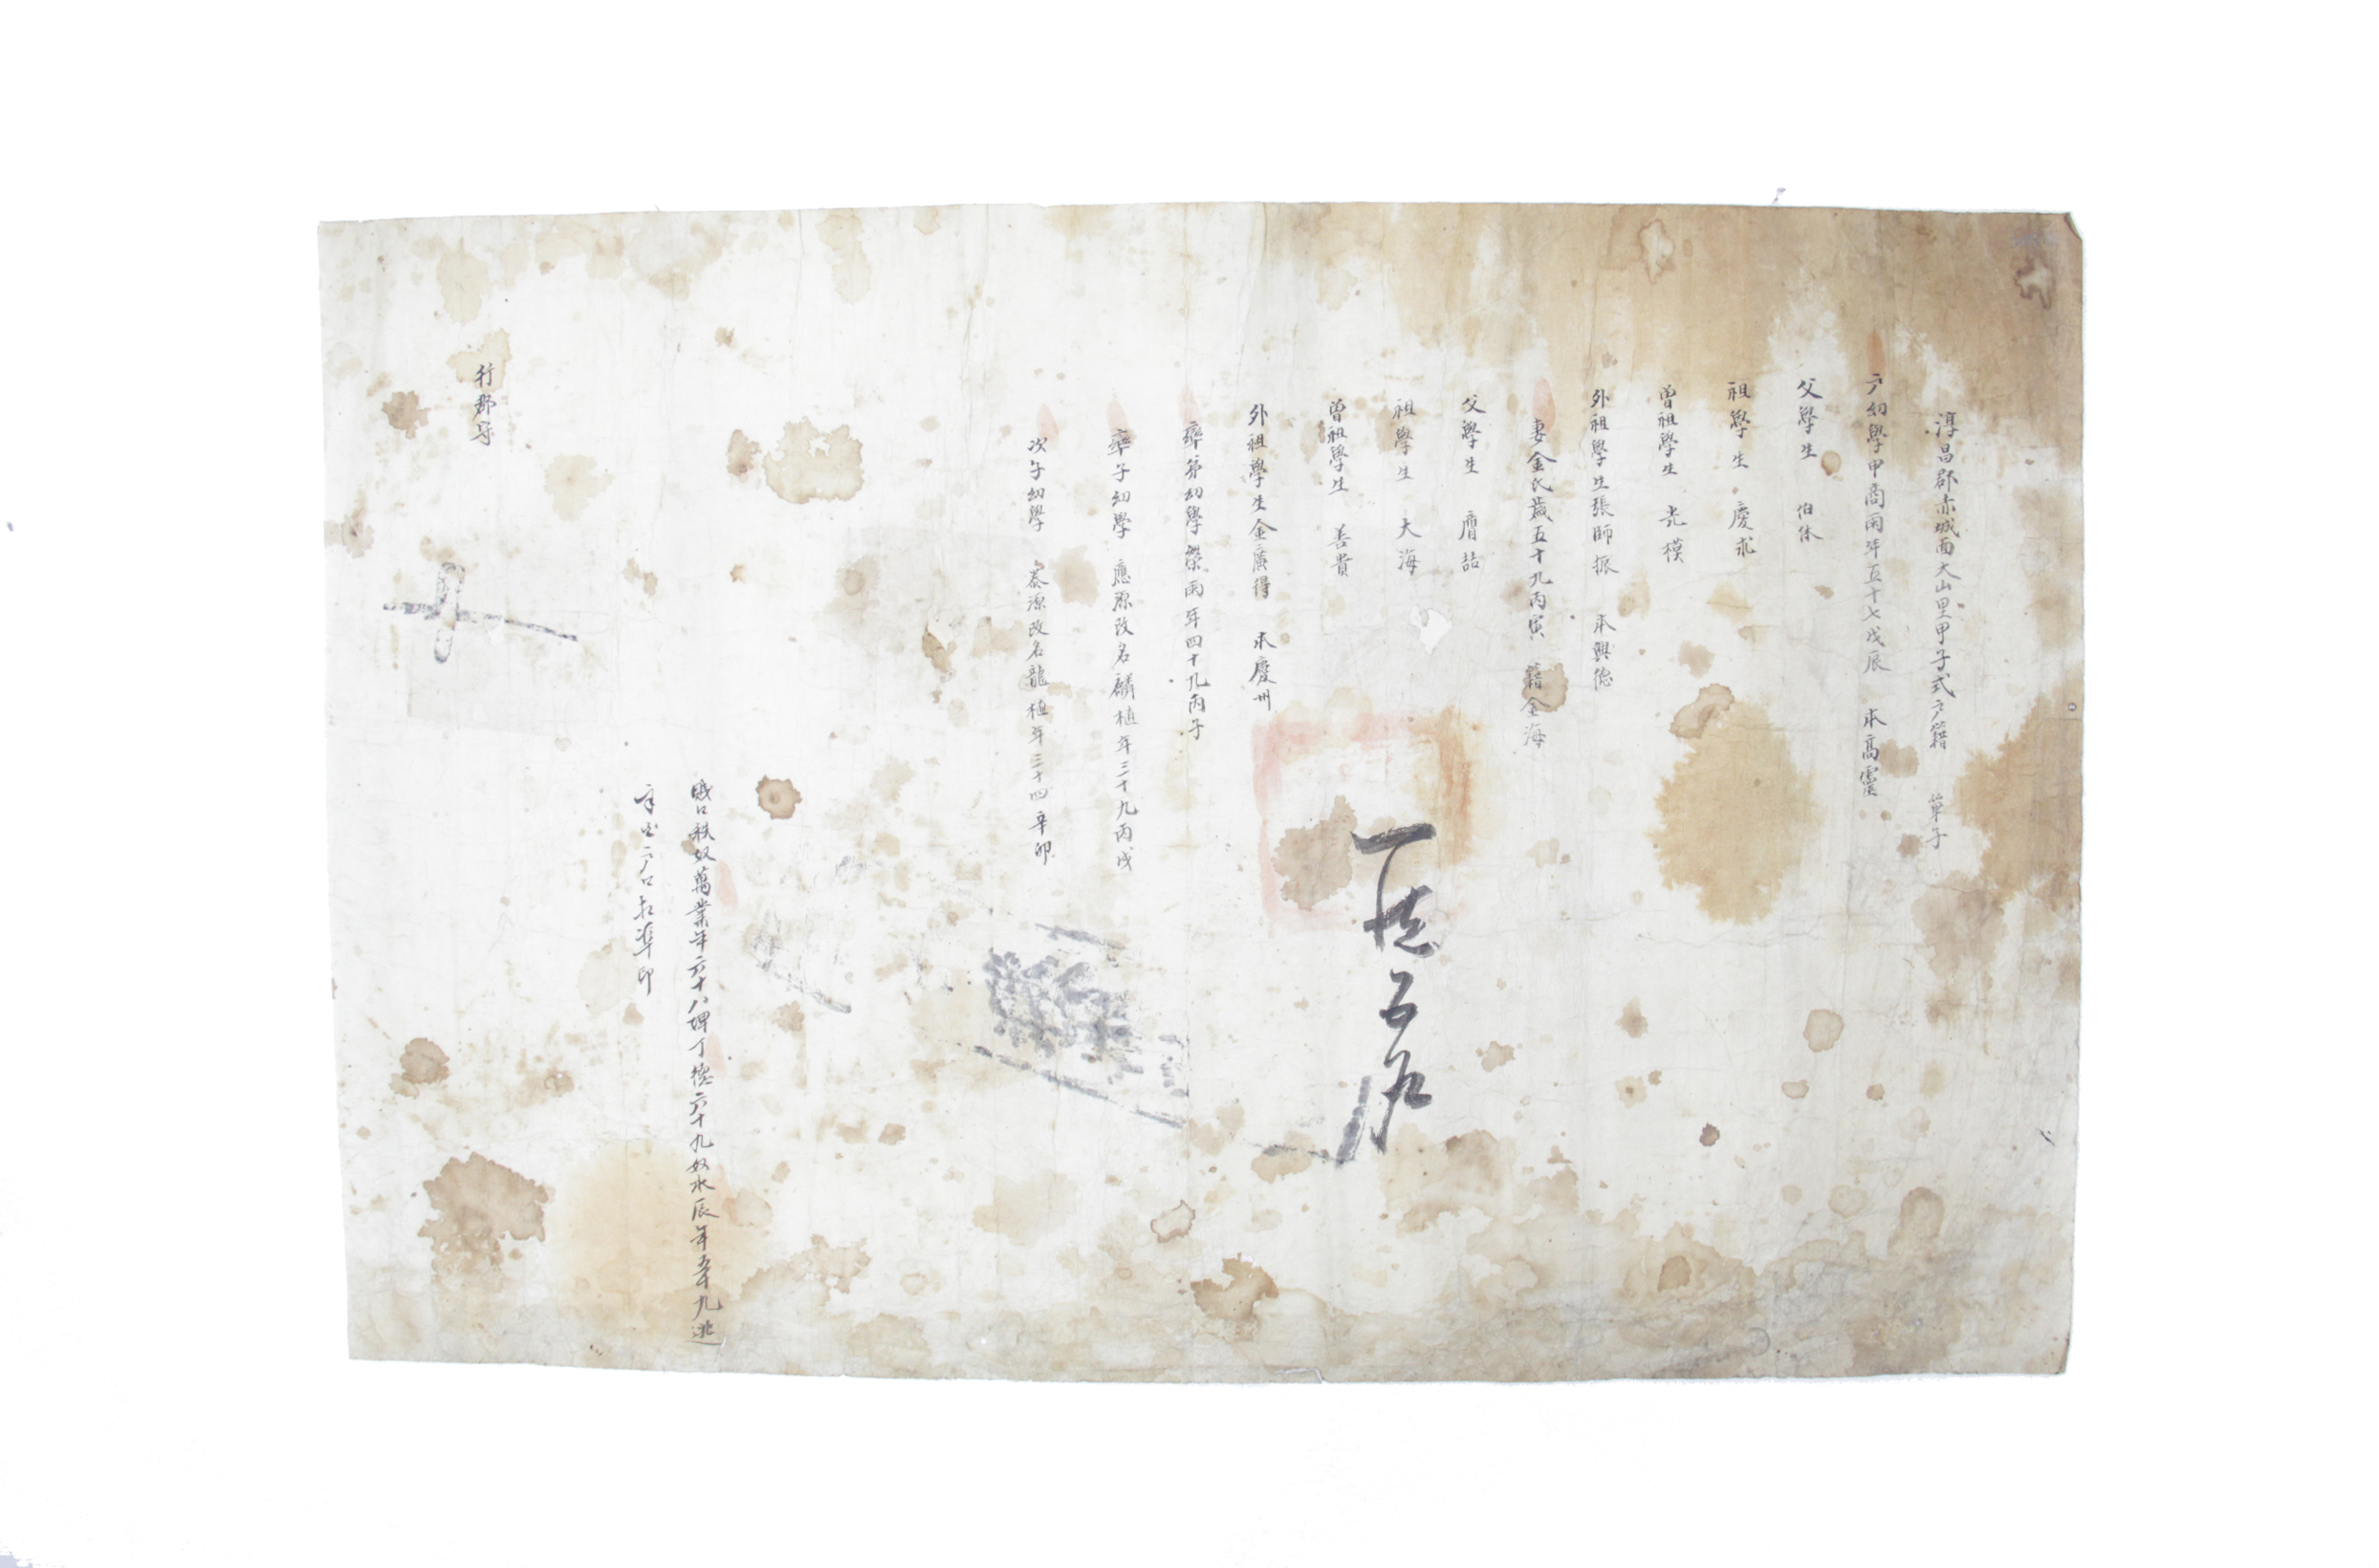 淳昌郡赤城面大山里甲子式户籍 第 子
户幼學申商雨年五十七戊辰 本高靈
父學生 伯休
祖學生 慶永
曾祖學生 光模
外祖學生張師振 本興德
妻金氏歲五十九丙寅 籍金海
父學生 膺喆
祖學生 大海
曾祖學生 善貴
外祖學生金廣得 本慶州
率弟幼學 榮雨年四十九丙子
率子幼學 應源改名麟植年三十九丙戌
次子幼學 泰源改名龍植年三十四辛卯
賤口秩奴萬業年六十八婢丁德六十九奴永辰年五十九逃
户口相準印
行郡守